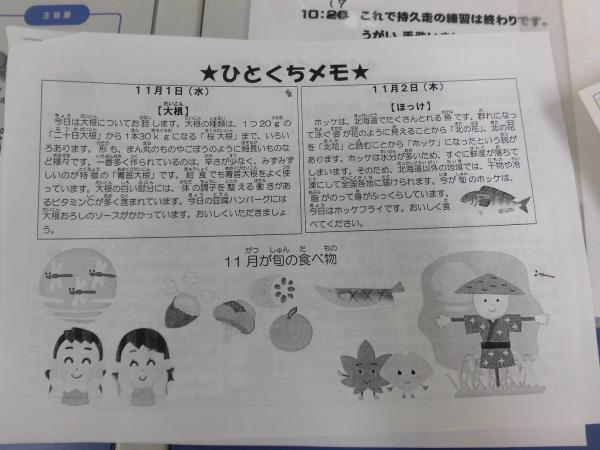 主音盤
10:20 これで持久走の練習は終わりです。
★ひとくちメモ★
11月1日(水)
【大根】
今日は大根についてお話します。大根の種類は、1つ20gの
「二十日大根」から1本30kgになる「桜大根」まで、いろい
ろあります。形も、まん丸のものやごぼうのように細長いものな
ど様々です。一番多く作られているのは、辛さが少なく、みずみず
しいのが特徴の「青首大根」です。給食でも青首大根をよく使
っています。大根の白い部分には、体の調子を整える働きがあ
るビタミンCが多く含まれています。今日の豆腐ハンバーグには
大根おろしのソースがかかっています。おいしくいただきましょ
う。
11月2日(木)
【ほっけ】
ホッケは、北海道でたくさんとれる魚です。群れになっ
て泳ぐ姿が花のように見えることから「北の花」、北の花
を「北花」と読むことから「ホッケ」になったという説が
あります。ホッケは水分が多いため、すぐに鮮度が落ちて
しまいます。そのため、北海道以外の地域では、干物や冷
凍にして全国各地に届けられます。今が旬のホッケは、
脂がのって身がふっくらしています。
今日はホッケフライです。おいしく食
べてください。
11月が旬の食べ物